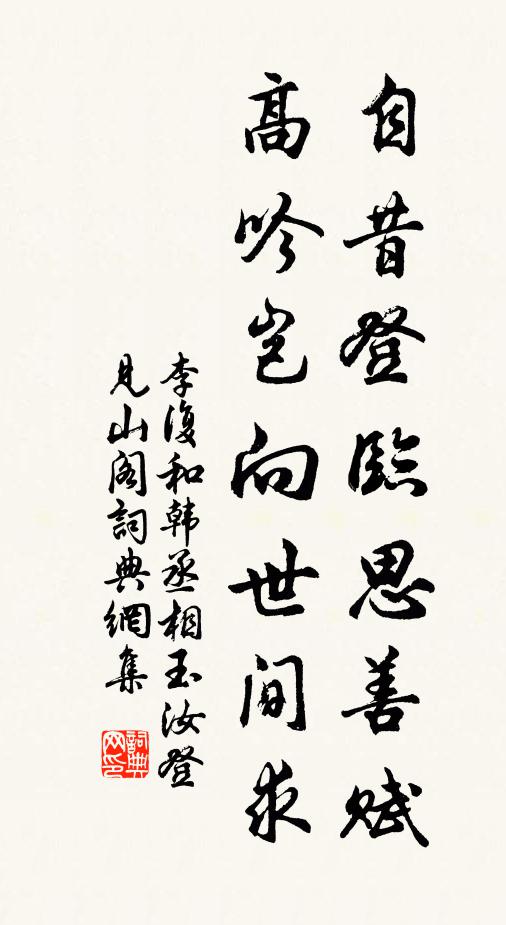 自昔登臨思善賦
高吟豈向世間求
李復和韓丞相玉汝登
見山閣詞典網集
詞典網印